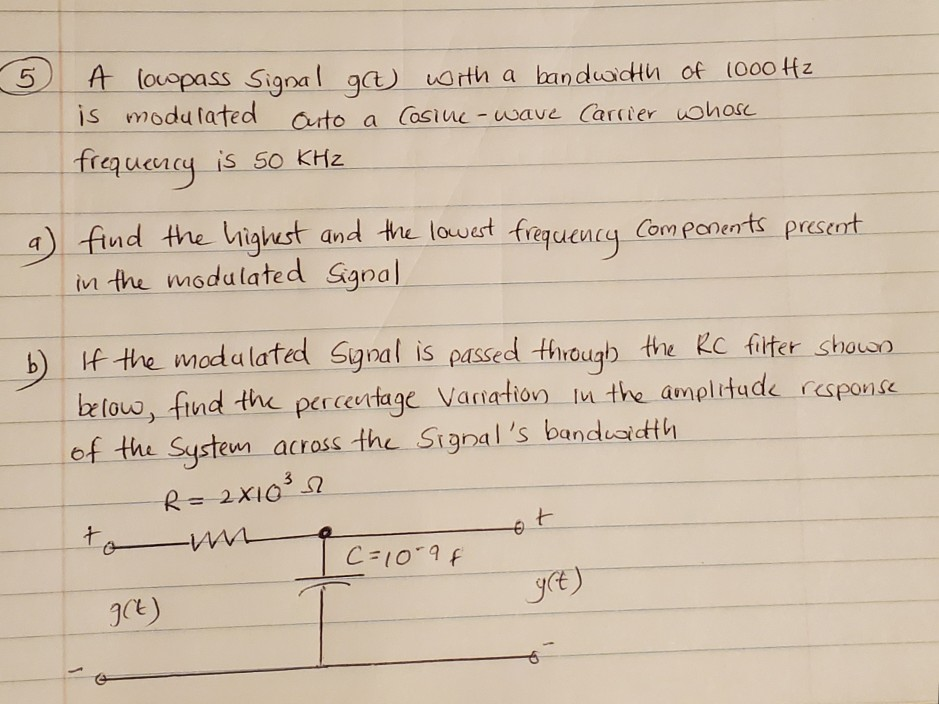 5 A lowpass Signal g(t) with a bandwidth of 1000 Hz
is modulated onto a Cosine-wave Carrier whose
frequency is 50 KHz
a) find the highest and the lowest frequency Components present
in the modulated Signal
b) If the modulated Signal is passed through the RC filter shown
below, find the percentage Variation in the amplitude response
of the System across the Signal's bandwidth
R = 2×10³ Ω
+ +
C=10-9 f
g(t) y(t)
- -